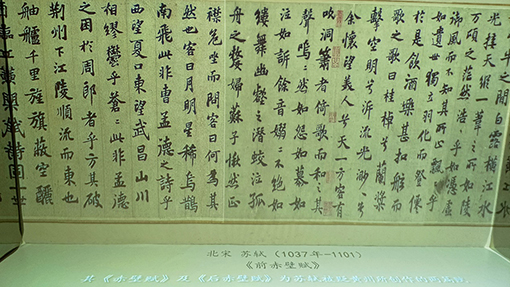 牛之間白露橫江水
光接天縱一葦之所如陵
萬頃之茫然浩浩乎如馮虛
御風而不知其所止飄飄乎
如遺世獨立羽化而登僊
於是飲酒樂甚扣舷而
歌之歌曰桂棹兮蘭槳
擊空明兮泝流光渺渺兮
余懷望美人兮天一方客有
吹洞簫者倚歌而和之其
聲嗚嗚然如怨如慕如
泣如訴餘音嫋嫋不絕如
縷舞幽壑之潛蛟泣孤
舟之嫠婦蘇子愀然正
襟危坐而問客曰何為其
然也客曰月明星稀烏鵲
南飛此非曹孟德之詩乎
西望夏口東望武昌山川
相繆鬱乎蒼蒼此非孟德
之困於周郎者乎方其破
荊州下江陵順流而東也
舳艫千里旌旗蔽空釃
北宋 苏轼（1037年-1101）
《前赤壁赋》
其《赤壁赋》及《后赤壁赋》为苏轼被贬黄州